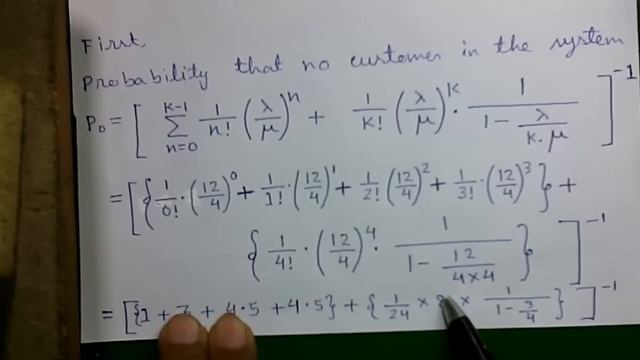 First,
Probability that no customer in the system
P₀ = [ Σ_{n=0}^{K-1} 1/n! (λ/μ)^n + 1/k! (λ/μ)^k · 1/(1 - λ/(k.μ)) ]^{-1}
= [ { 1/0! · (12/4)^0 + 1/1! · (12/4)^1 + 1/2! (12/4)^2 + 1/3! · (12/4)^3 } +
{ 1/4! · (12/4)^4 · 1/(1 - 12/(4×4)) } ]^{-1}
= [ {1 + + 4.5 + 4.5} + { 1/24 × × 1/(1 - 3/4) } ]^{-1}